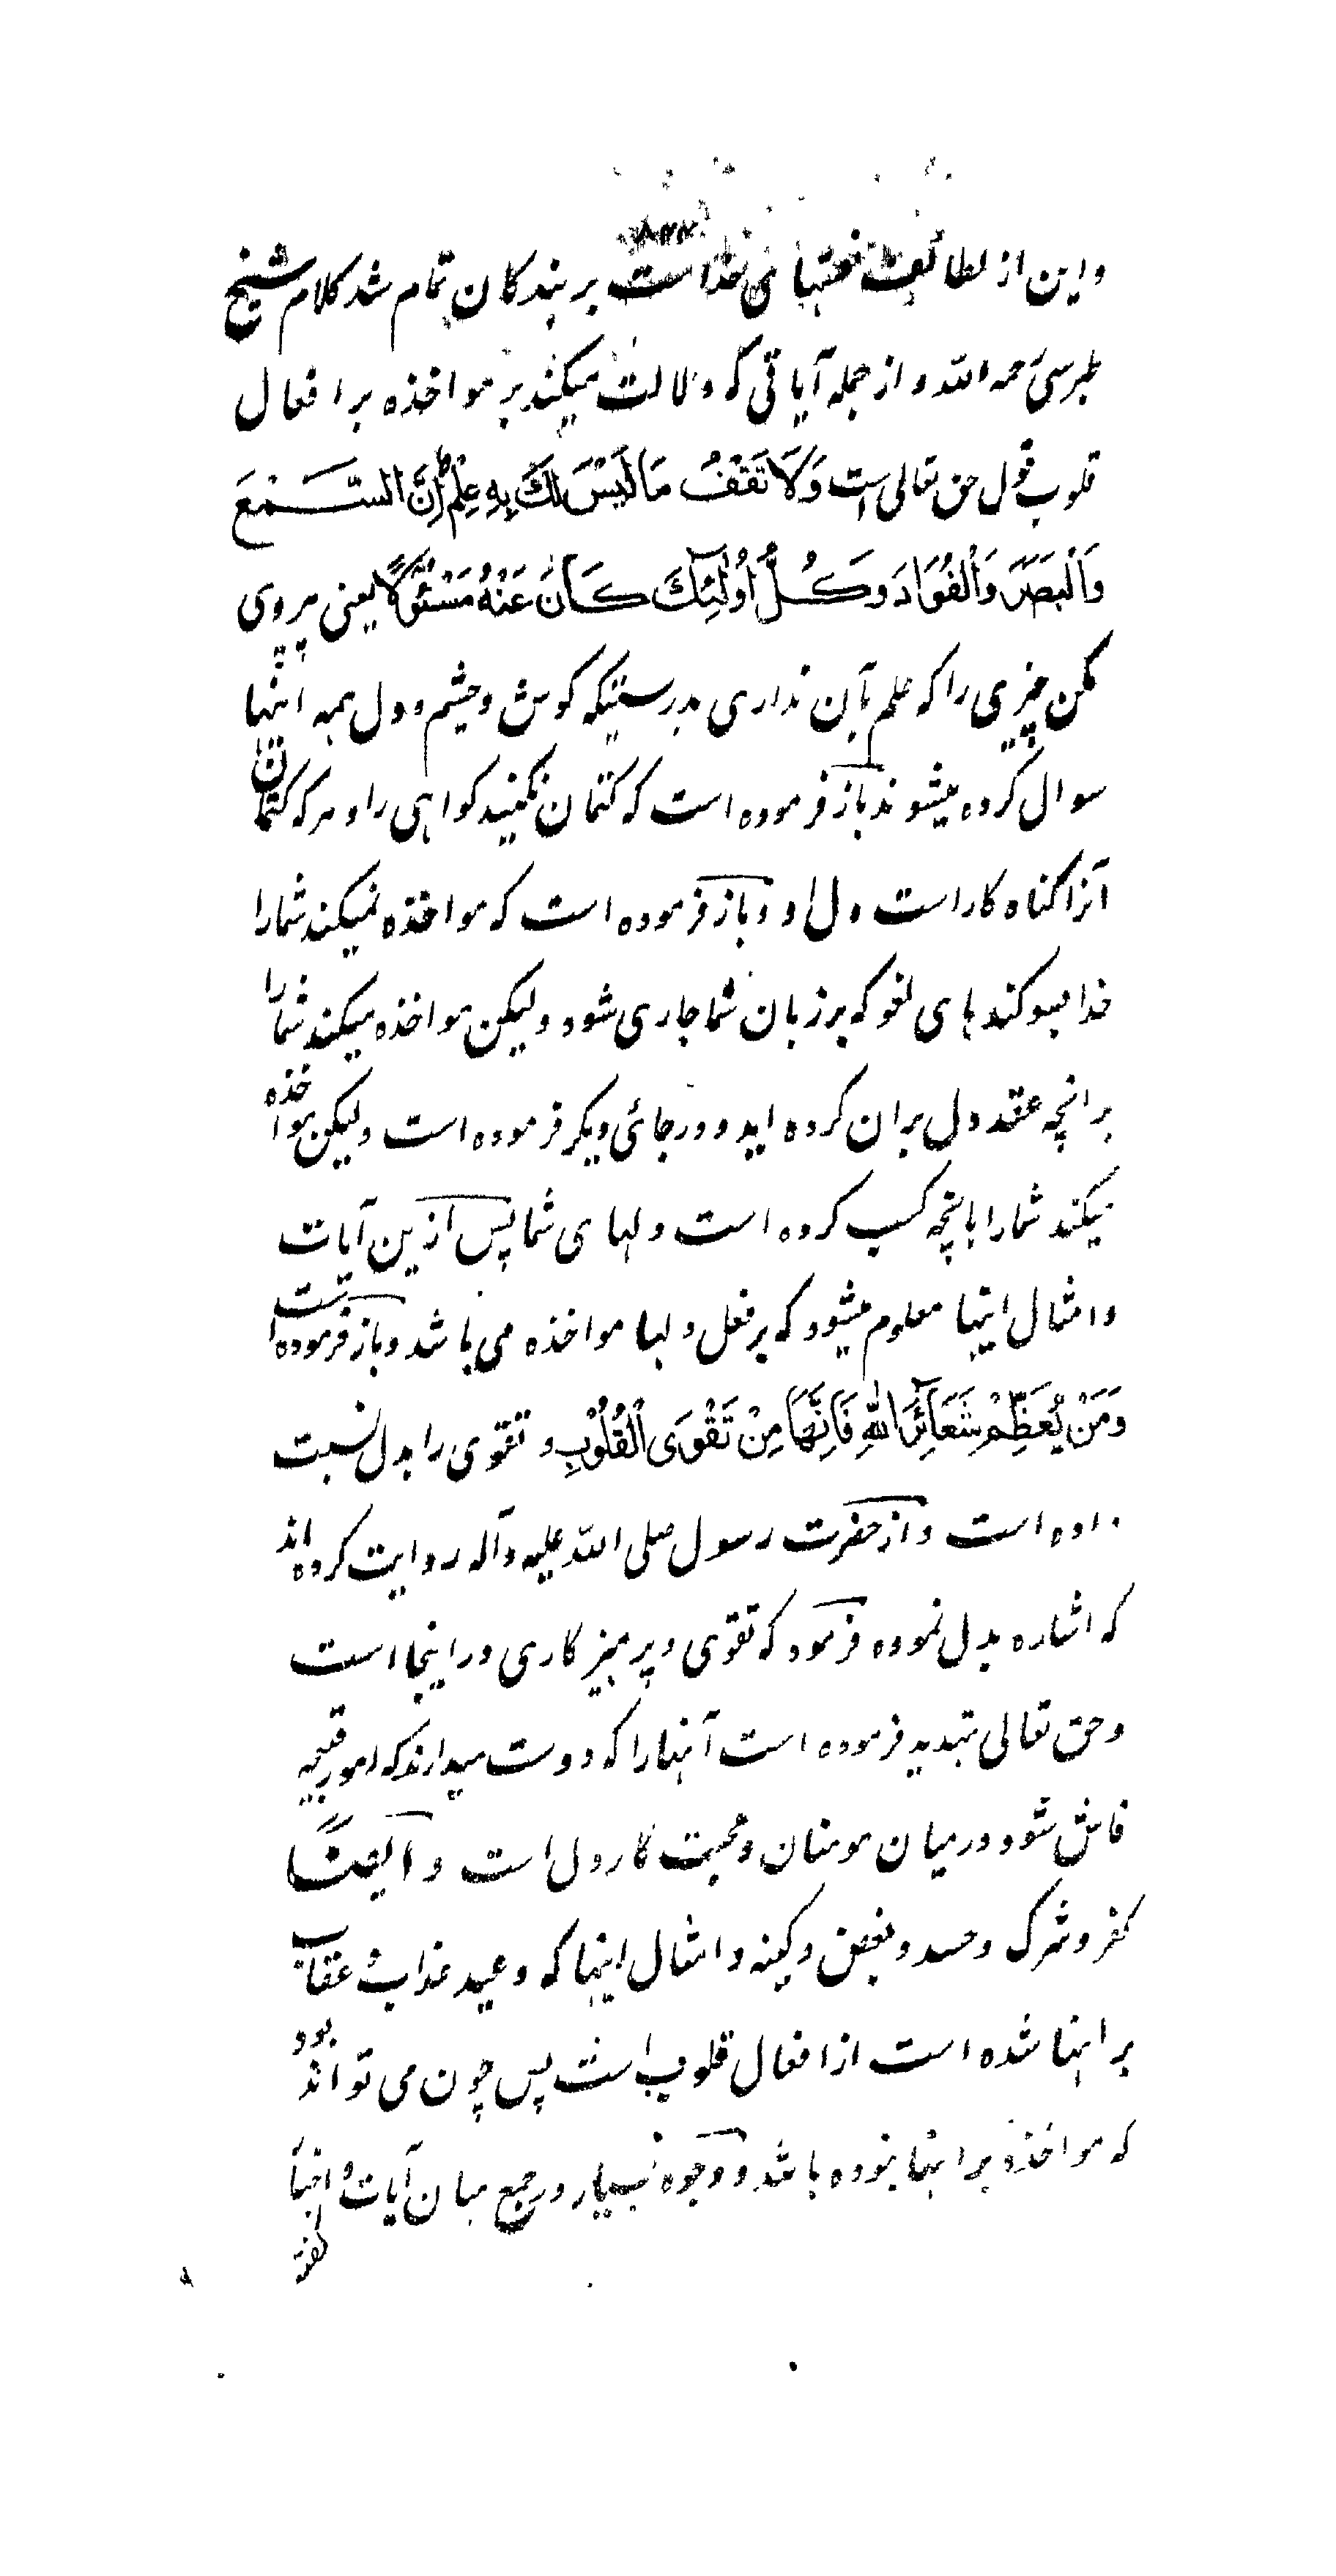 واین از لطائف نعمتهای خداست بر بندکان تمام شد کلام شیخ
طبرسی رحمه الله و از جمله آیاتی که دلالت میکند بر مواخذه بر افعال
قلوب قول حق تعالی است وَلَا تَقْفُ مَا لَیْسَ لَكَ بِهِ عِلْمٌ اِنَّ السَّمْعَ
وَالْبَصَرَ وَالْفُوَادَ وَکُلُّ اُولٰئِكَ كَانَ عَنْهُ مَسْئُوْلًا یعنی پیروی
مکن چیزی را که علم بآن نداری بدرستیکه کوش و چشم و دل همه اینها
سوال کرده میشوند باز فرموده است که کتمان نکنید کواهی را و هر که کتمان
آنرا کناه کار است دل او و باز فرموده است که مواخذه نمیکند شمارا
خدا بسوکندهای لغو که بر زبان شما جاری شود ولیکن مواخذه میکند شما را
برانچه عقد دل بران کرده اید و در جائی دیکر فرموده است ولیکن مواخذه
میکند شمارا بانچه کسب کرده است دلهای شما پس ازین آیات
و امثال اینها معلوم میشود که بر فعل دلها مواخذه می باشد و باز فرموده است
وَمَنْ یُعَظِّمْ شَعَائِرَ اللهِ فَاِنَّهَا مِنْ تَقْوَی الْقُلُوْبِ و تقوی را بدل نسبت
داده است و از حضرت رسول صلی الله علیه وآله روایت کرده اند
که اشاره بدل نموده فرمود که تقوی و پرهیز کاری در اینجا است
و حق تعالی تهدید فرموده است آنهارا که دوست میدارند که امور قبیحه
فاش شود در میان مومنان و محبت کار دل است و ایضًا
کفر و شرک و حسد و بغض و کینه و امثال اینها که وعید عذاب و عقاب
بر اینها شده است از افعال قلوب است پس چون می تواند بود
که مواخذه بر اینها نبوده باشد و وجوه بسیار در جمع میان آیات و اخبار